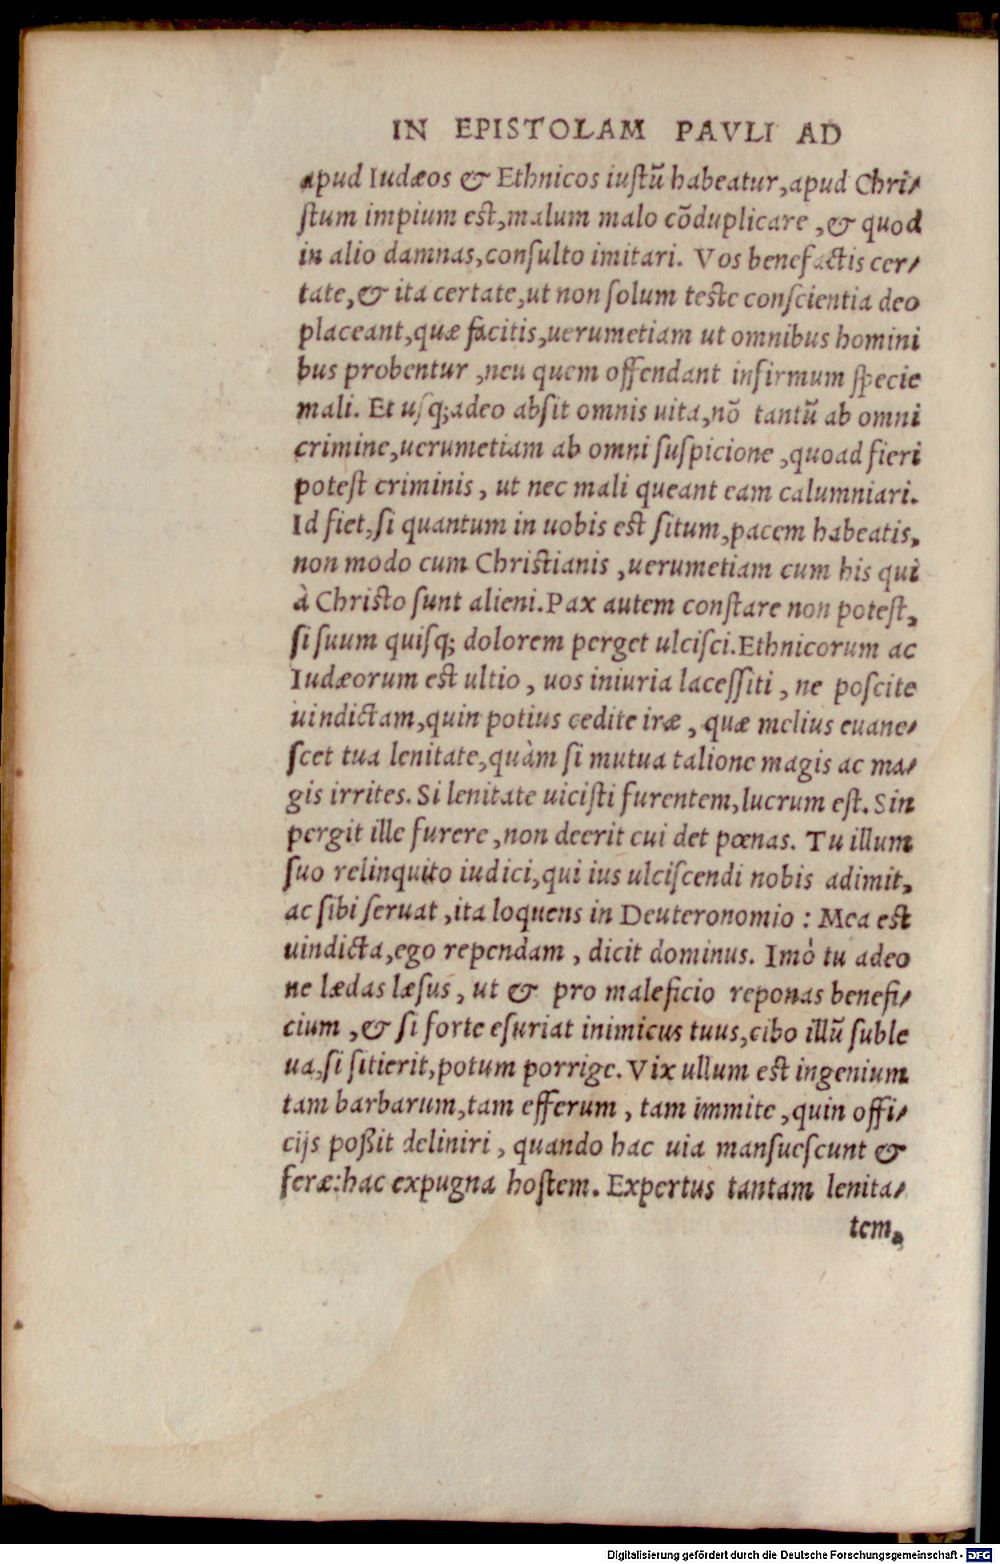 IN EPISTOLAM PAVLI AD
apud Iudæos & Ethnicos iuſtū habeatur, apud Chri-
ſtum impium eſt, malum malo cōduplicare, & quod
in alio damnas, conſulto imitari. Vos benefactis cer-
tate, & ita certate, ut non ſolum teſte conſcientia deo
placeant, quæ facitis, uerumetiam ut omnibus homini
bus probentur, neu quem offendant infirmum ſpecie
mali. Et uſq; adeo abſit omnis uita, nō tantū ab omni
crimine, uerumetiam ab omni ſuſpicione, quoad fieri
poteſt criminis, ut nec mali queant eam calumniari.
Id fiet, ſi quantum in uobis eſt ſitum, pacem habeatis,
non modo cum Chriſtianis, uerumetiam cum his qui
à Chriſto ſunt alieni. Pax autem conſtare non poteſt,
ſi ſuum quiſq; dolorem perget ulciſci. Ethnicorum ac
Iudæorum eſt ultio, uos iniuria laceſſiti, ne poſcite
uindictam, quin potius cedite iræ, quæ melius euane-
ſcet tua lenitate, quàm ſi mutua talione magis ac ma-
gis irrites. Si lenitate uiciſti furentem, lucrum eſt. Sin
pergit ille furere, non deerit cui det pœnas. Tu illum
ſuo relinquito iudici, qui ius ulciſcendi nobis adimit,
ac ſibi ſeruat, ita loquens in Deuteronomio: Mea eſt
uindicta, ego rependam, dicit dominus. Imò tu adeo
ne lædas læſus, ut & pro maleficio reponas benefi-
cium, & ſi forte eſuriat inimicus tuus, cibo illū ſuble
ua, ſi ſitierit, potum porrige. Vix ullum eſt ingenium
tam barbarum, tam efferum, tam immite, quin offi-
cijs poßit deliniri, quando hac uia manſueſcunt &
feræ: hac expugna hoſtem. Expertus tantam lenita-
tem,
Digitalisierung gefördert durch die Deutsche Forschungsgemeinschaft - DFG